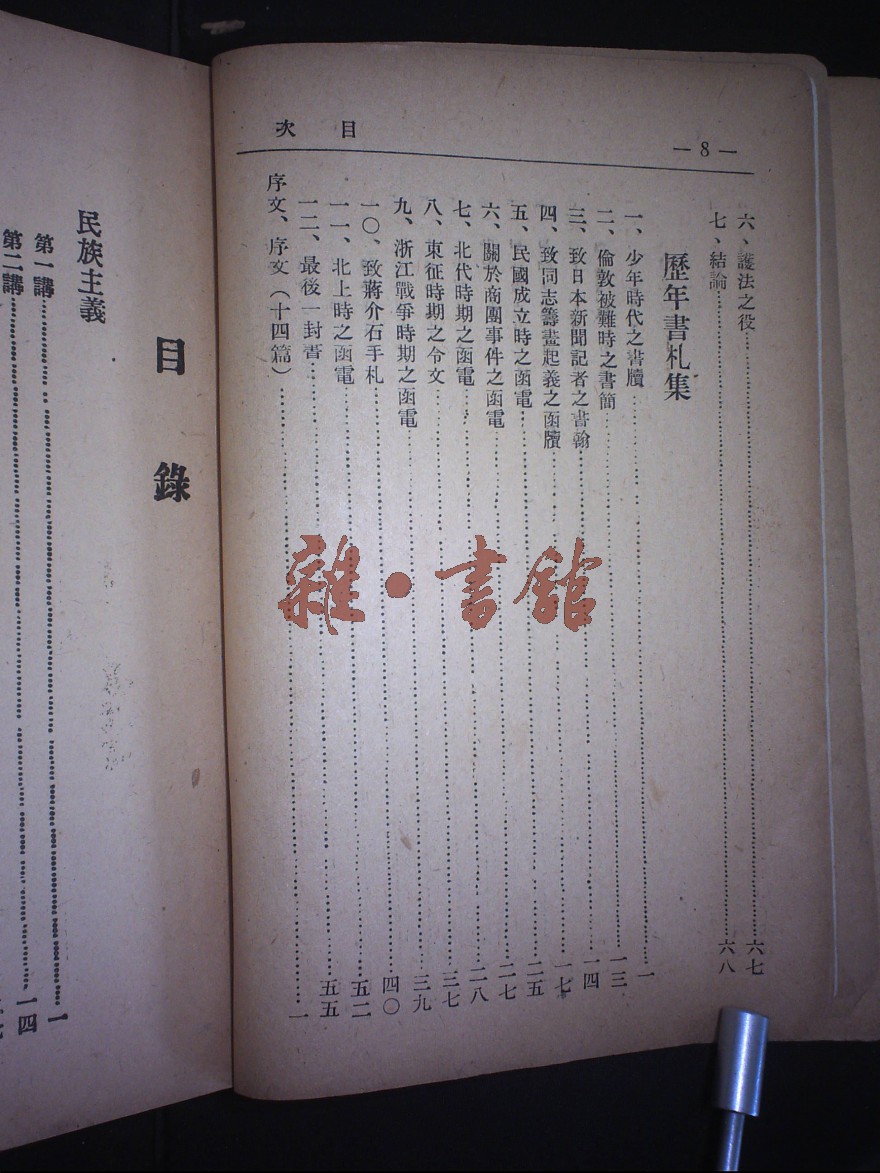 — 8 —
目 次
六、護法之役……六七
七、結論……六八
歷年書札集
一、少年時代之書牘……一
二、倫敦被難時之書簡……一三
三、致日本新聞記者之書翰……一四
四、致同志籌畫起義之函牘……一七
五、民國成立時之函電……二五
六、關於商團事件之函電……二七
七、北代時期之函電……二八
八、東征時期之令文……三七
九、浙江戰爭時期之函電……三九
一〇、致蔣介石手札……四〇
一一、北上時之函電……五二
一二、最後一封書……五五
序文、序文（十四篇）……一
目錄
民族主義
第一講……一
第二講……一四
雜·書館